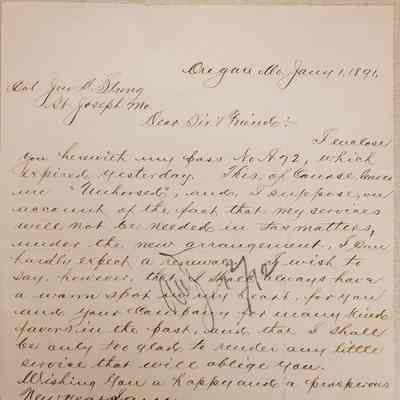 Oregon Mo, Jany 1, 1891.
Col Jno S. Strong
St. Joseph Mo.
Dear Sir & Friend:-
I enclose
you herewith my pass No A92, which
expired yesterday. This, of Course, leaves
me "Unhorsed", and, I suppose, on
account of the fact that my services
will not be needed in tax matters,
under the new arrangement, I can
hardly expect a renewal. I wish to
say, however, that I shall always have
a warm spot in my heart, for you
and your Company for many kind
favors in the past, and that I shall
be only too glad to render any little
service that will oblige you.
Wishing you a happy and a prosperous
New Year I am